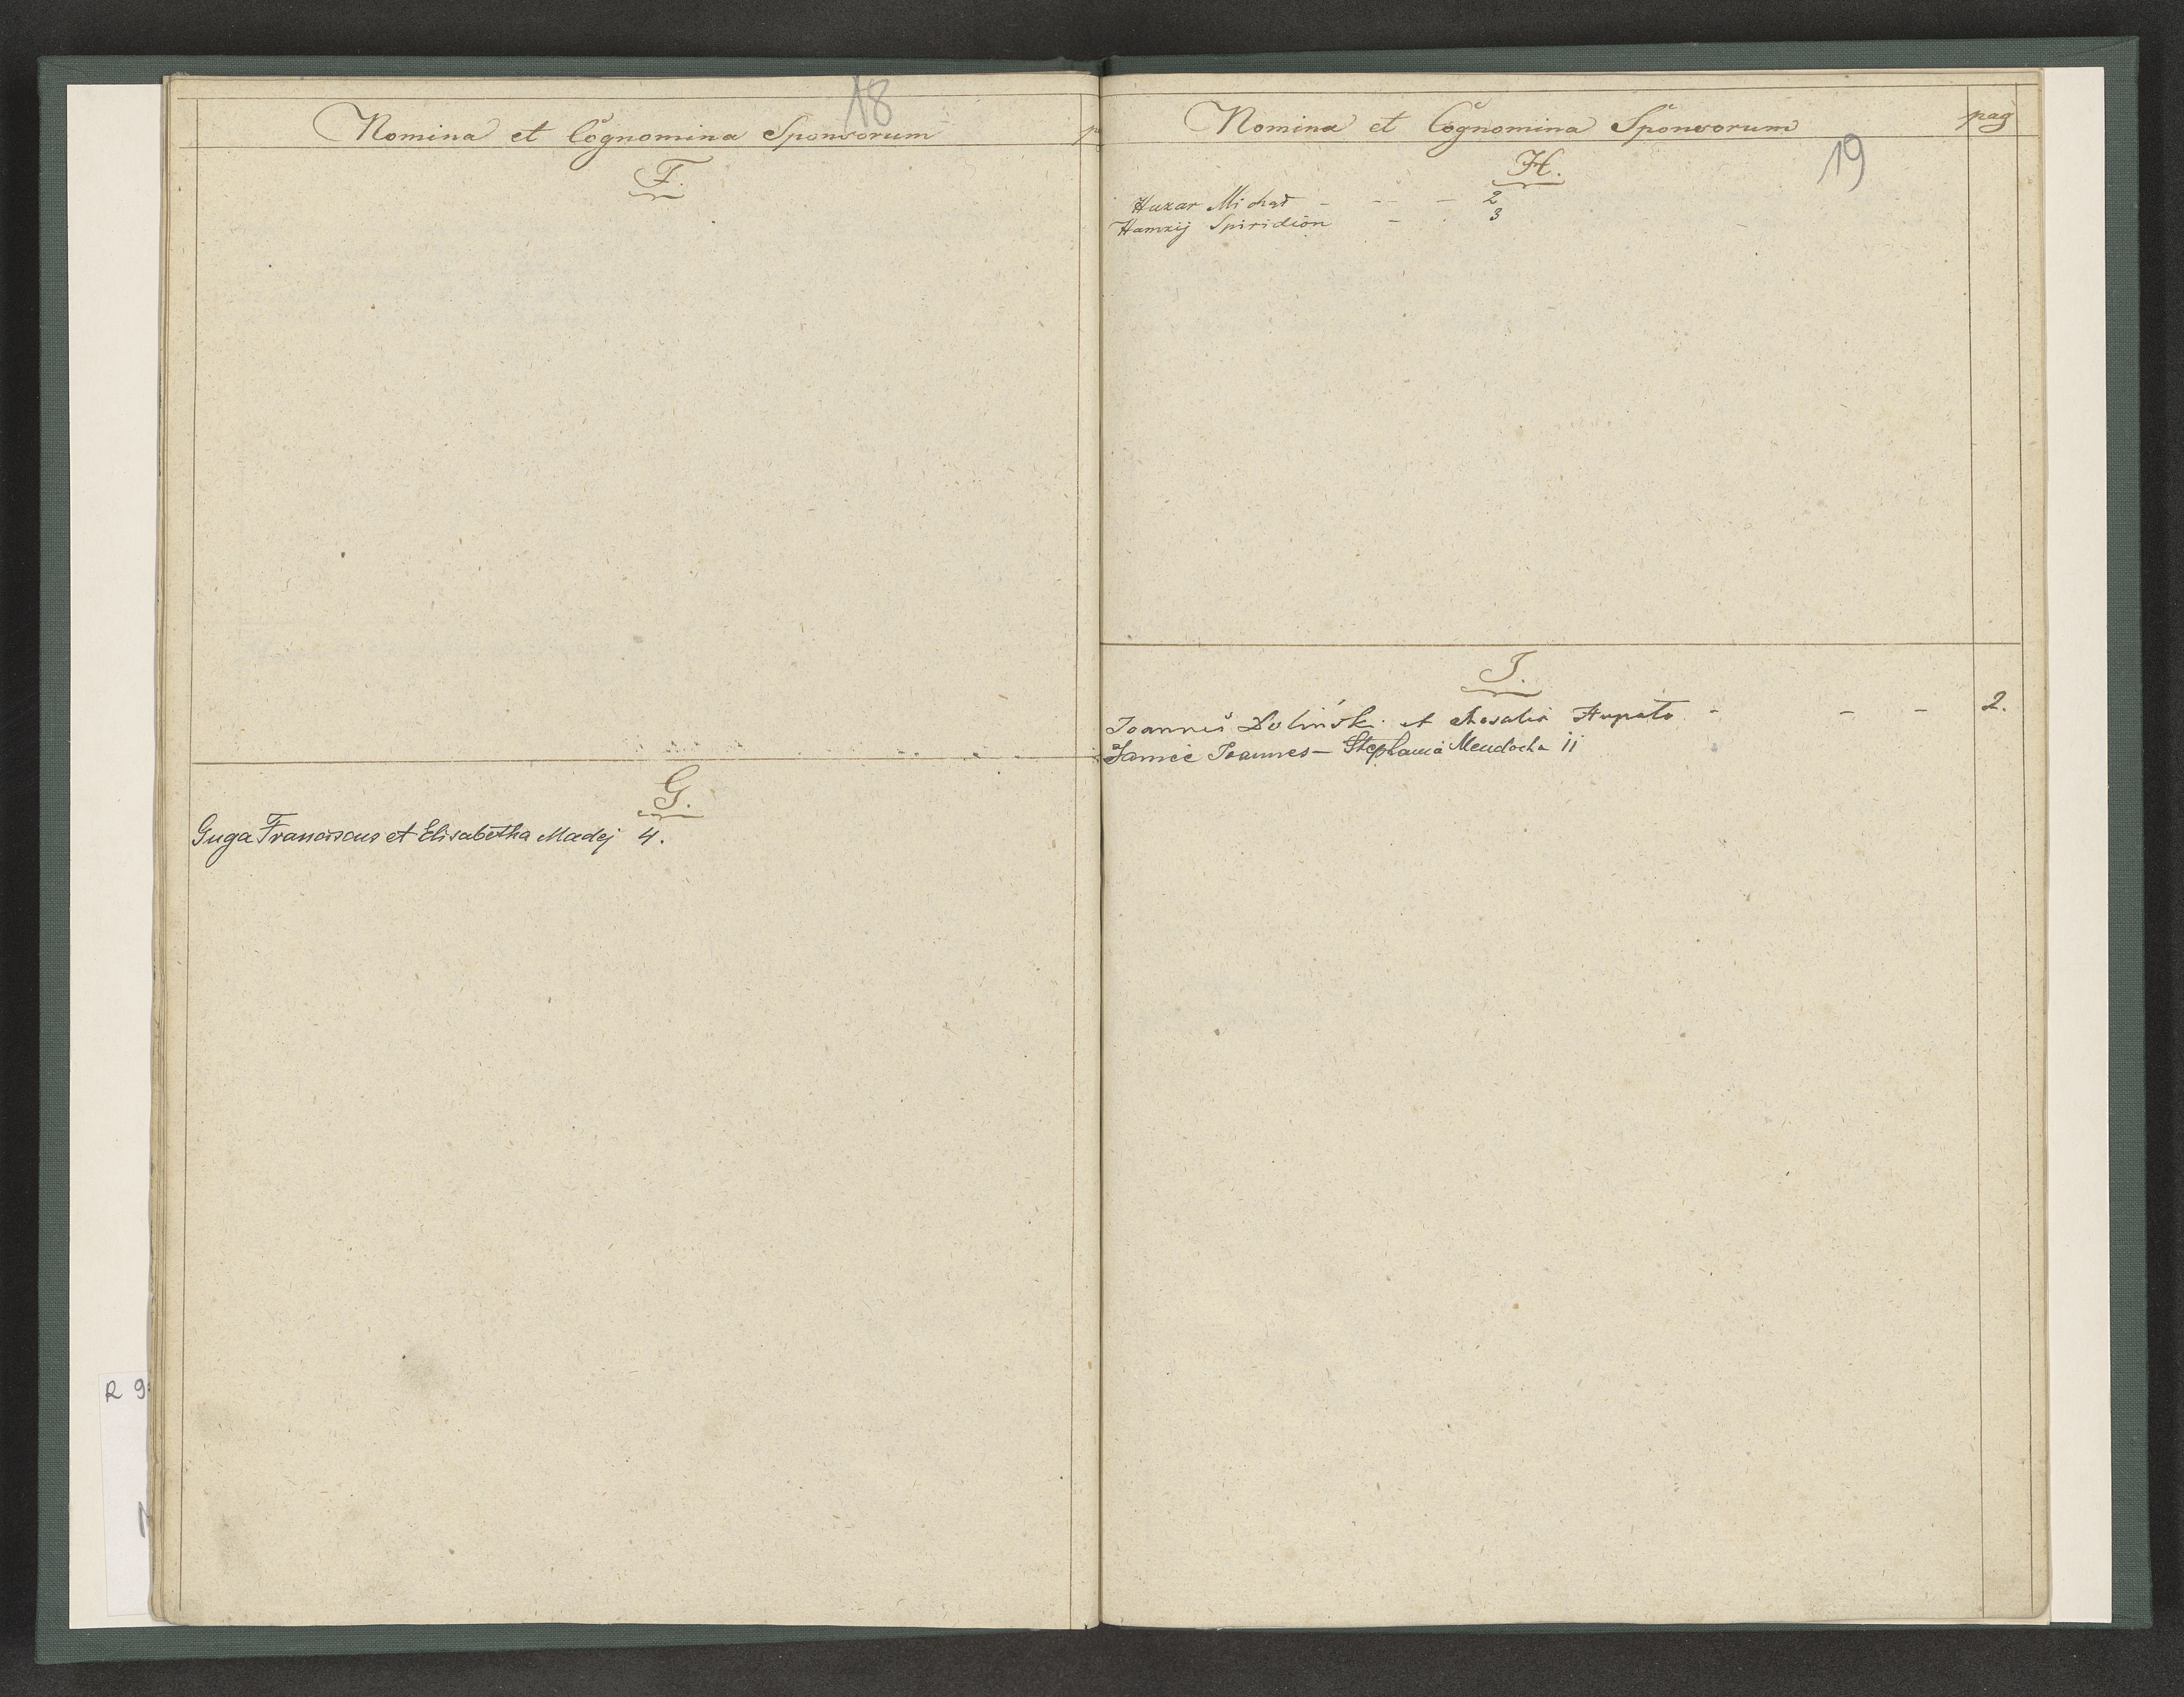 18
Nomina et Cognomina Sponsorum
F.
G.
Guga Franciscus et Elisabetha Madej 4.
R 9
Nomina et Cognomina Sponsorum pag
19
H.
Huzar Michał - -- - 2
Hamzij Spiridion - . 3
I.
Joannes Doliński et Rosalia - - - 2.
Janic Joannes — Stephania Mendocha 11